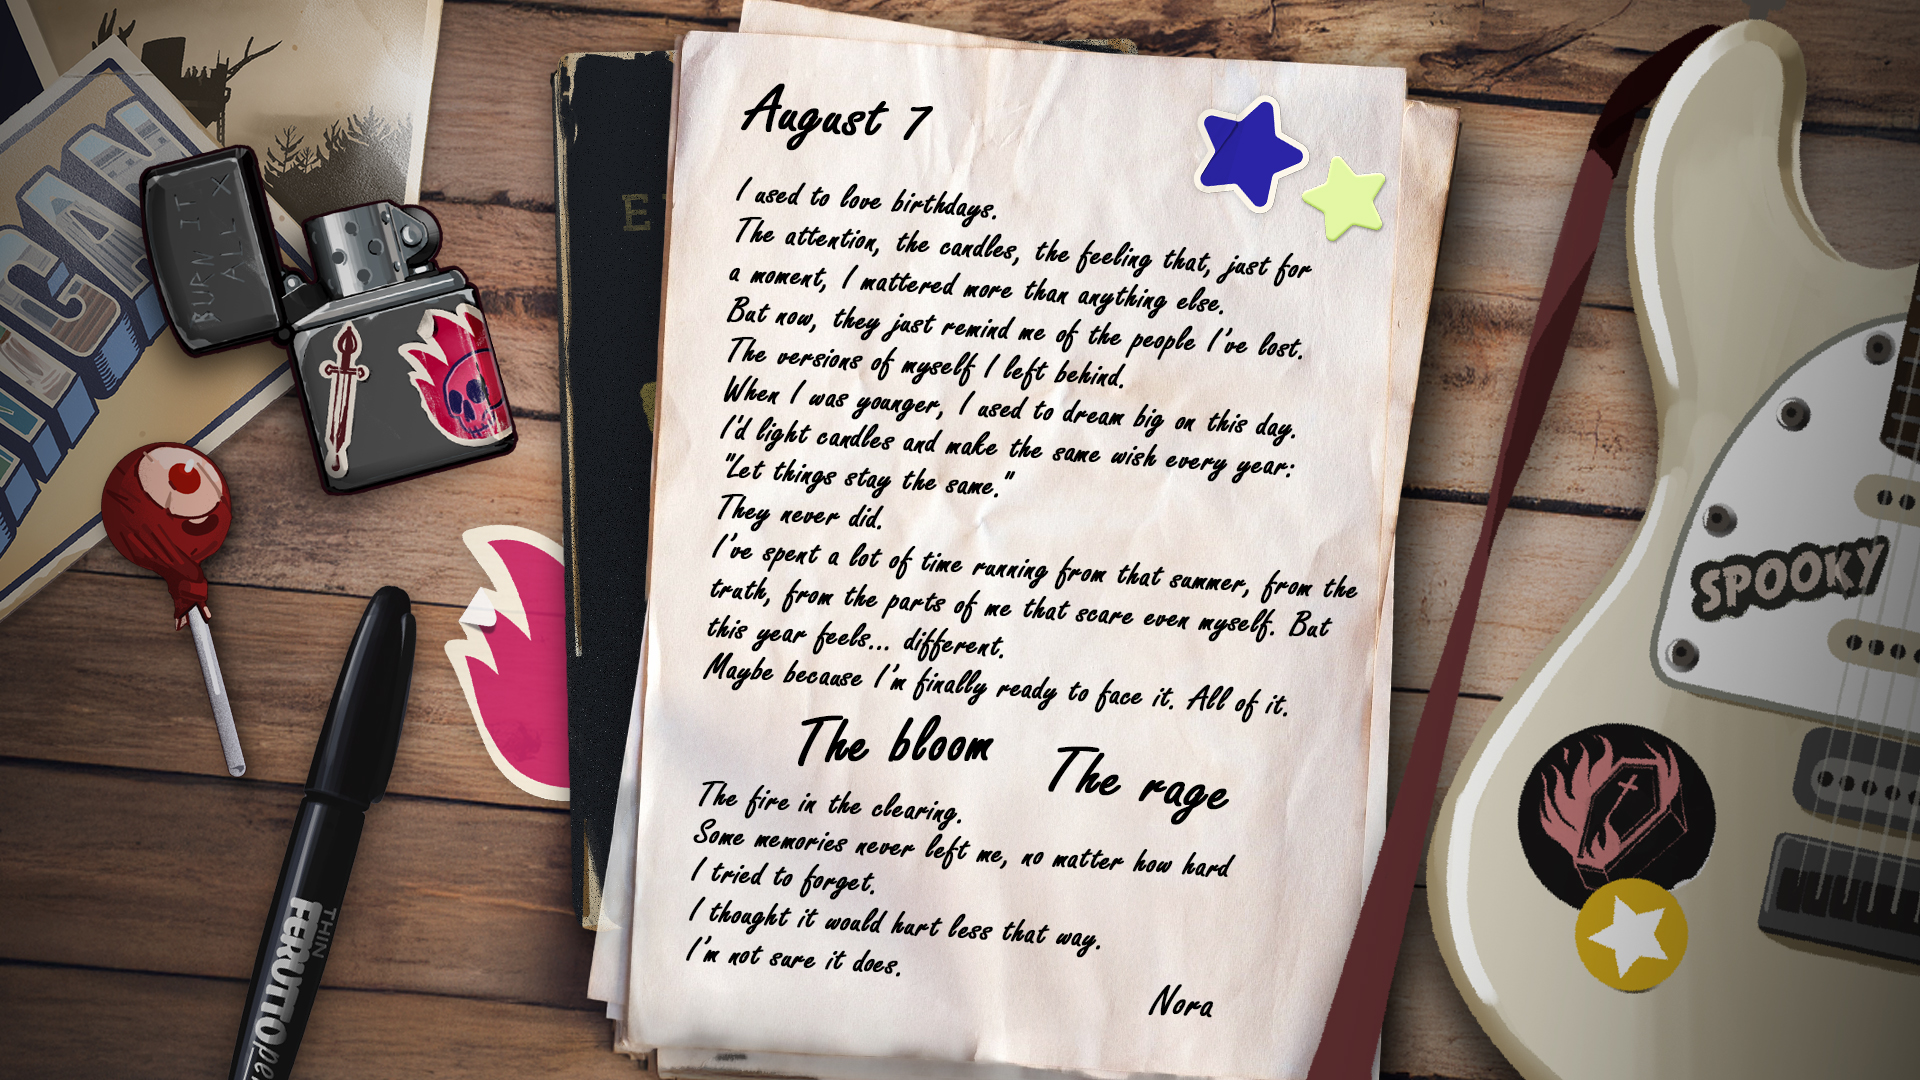 August 7
I used to love birthdays.
The attention, the candles, the feeling that, just for
a moment, I mattered more than anything else.
But now, they just remind me of the people I've lost.
The versions of myself I left behind.
When I was younger, I used to dream big on this day.
I'd light candles and make the same wish every year:
"Let things stay the same."
They never did.
I've spent a lot of time running from that summer, from the
truth, from the parts of me that scare even myself. But
this year feels... different.
Maybe because I'm finally ready to face it. All of it.
The bloom
The rage
The fire in the clearing.
Some memories never left me, no matter how hard
I tried to forget.
I thought it would hurt less that way.
I'm not sure it does.
Nora
BURN IT
ALL X
THIN
FERUTTOpen
SPOOKY